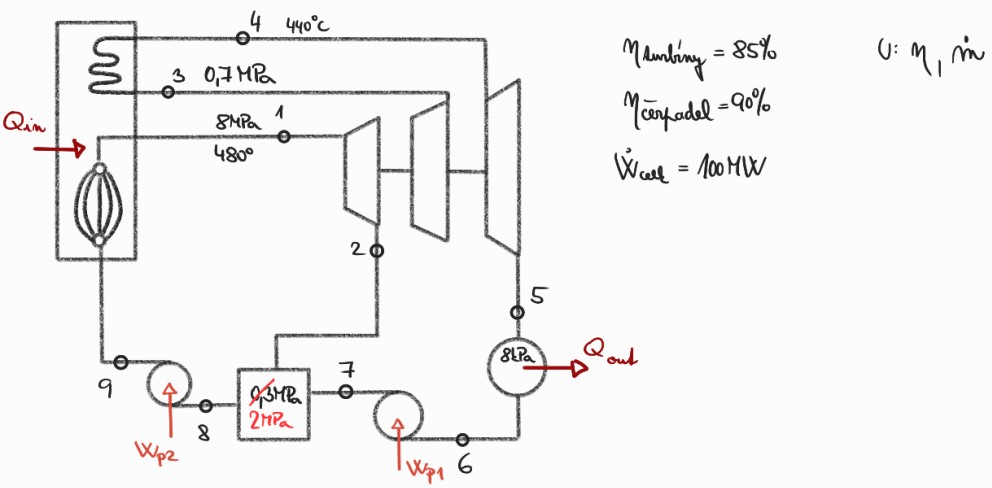 4 440°C
3 0,7 MPa
Qin
8MPa 1
480°
2
5
8kPa
Qout
9
7
0,3MPa
2MPa
8
Wp2
6
Wp1
η turbíny = 85%
η čerpadel = 90%
Ẇcelk = 100MW
U: η, ṁ